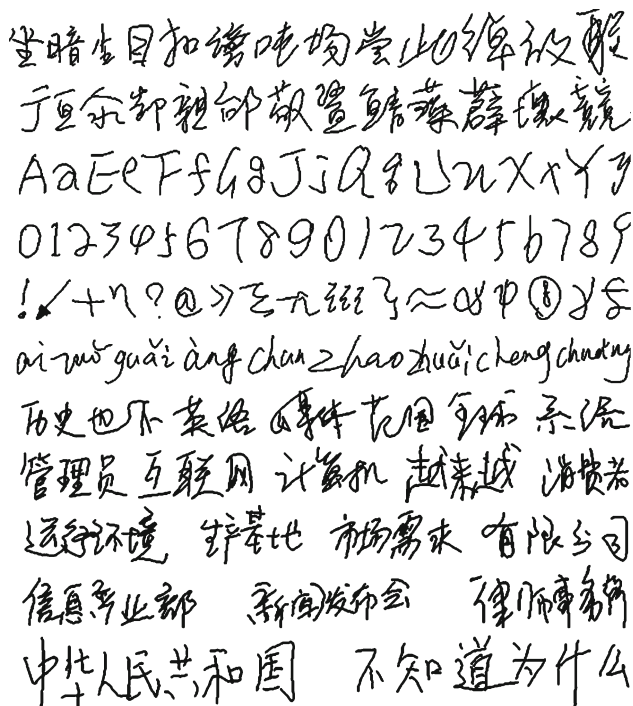 坐暗生目扣吨场尝此绰设
亍豆余却亲郃敬鲭藻薜壤竞
AaEeFfGgJjQqUuXxYy
01234567890123456789
!↙+η?@》≈αψ⑧γ
ai zuǒ guǎi àng chun zhao zhuǎi cheng chuang
历史也不 英语 媒体 范围 全球 系统
管理员 互联网 计算机 越来越 消费者
运行环境 生产基地 市场需求 有限公司
信息产业部 新闻发布会 律师事务所
中华人民共和国 不知道为什么